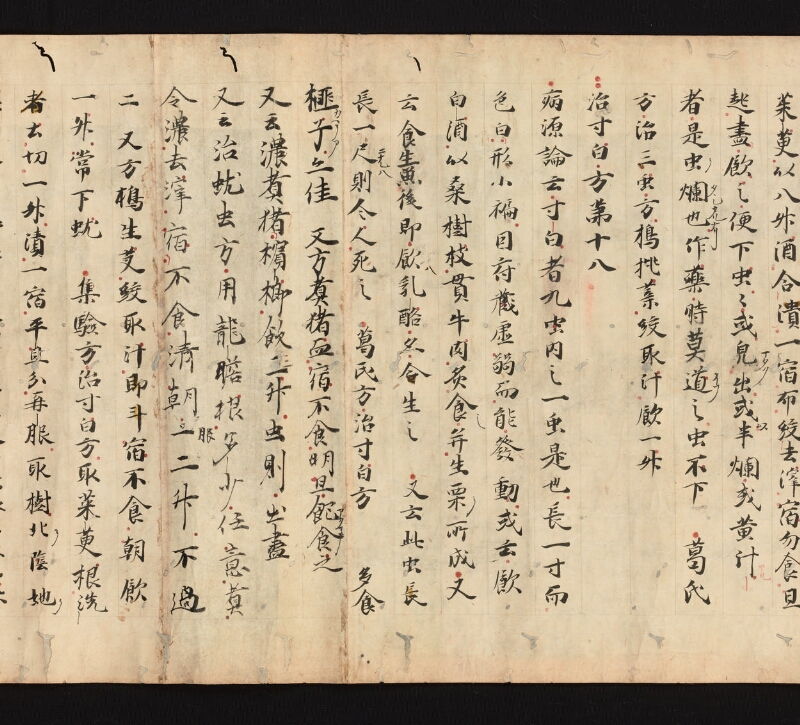 茱萸以八升酒合漬一宿布絞去滓宿勿食旦
趂盡飲之便下虫之或見出或半爛或黄汁
者是虫爛也作藥時莫道之虫不下 葛氏
方治三虫方搗桃葉絞取汁飲一升
治寸白方第十八
病源論云寸白者九虫内之一虫是也長一寸而
色白形小褊因府蔵虚弱而能發動或云飲
白酒以桑樹枝貫牛肉炙食并生栗所成又
云食生魚後即飲乳酪亦令生之 又云此虫長
長一尺則令人死之 葛氏方治寸白方 多食
榧子亦佳 又方煑猪血宿不食明旦飽食之
又云濃煑猪檳榔飲二升虫則出盡
又云治蚘虫方用龍膽根多少任意煑
令濃去滓宿不食清朝服一二升不過
二 又方搗生艾絞取汁即斗宿不食朝飲
一升常下蚘 集驗方治寸白方取茱萸根洗
者去切一升漬一宿平旦分再服取樹北陰地